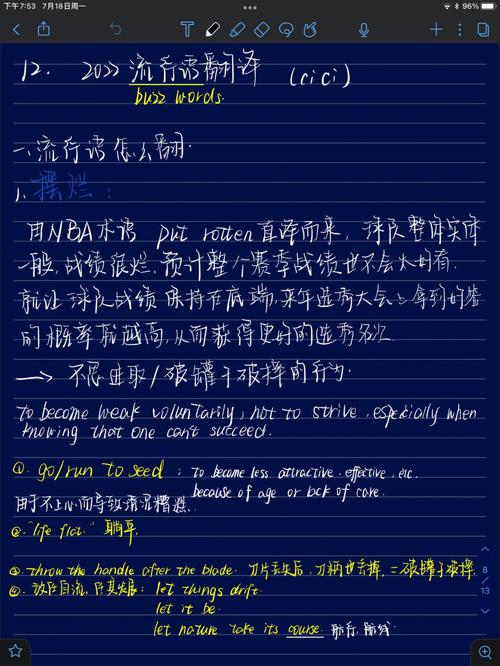 下午7:53 7月18日周一 96%
12. 2022 流行语翻译 (cici)
buzz words.
一、流行语怎么翻.
1. 摆烂：
由NBA术语 put rotten 直译而来，球队整体实体
一般，战绩很烂，预计整个赛季战绩也不会好看，
就让球队战绩保持在底端，来年选秀大会上拿到好签
的概率就越高，从而获得更好的选秀名次
→ 不思进取/破罐子破摔的行为.
to become weak voluntarily, not to strive, especially when
knowing that one can't succeed.
①. go/run to seed ; to become less attractive. effective, etc.
because of age or lack of care.
由于不上心而导致
②. "life flat" 躺平.
③. throw the handle after the blade. 刀片丢失后，刀柄也丢掉，=破罐子破摔.
④. 放任自流，任其发展： let things drift.
let it be.
let nature take its course. 航行，航线
8
13